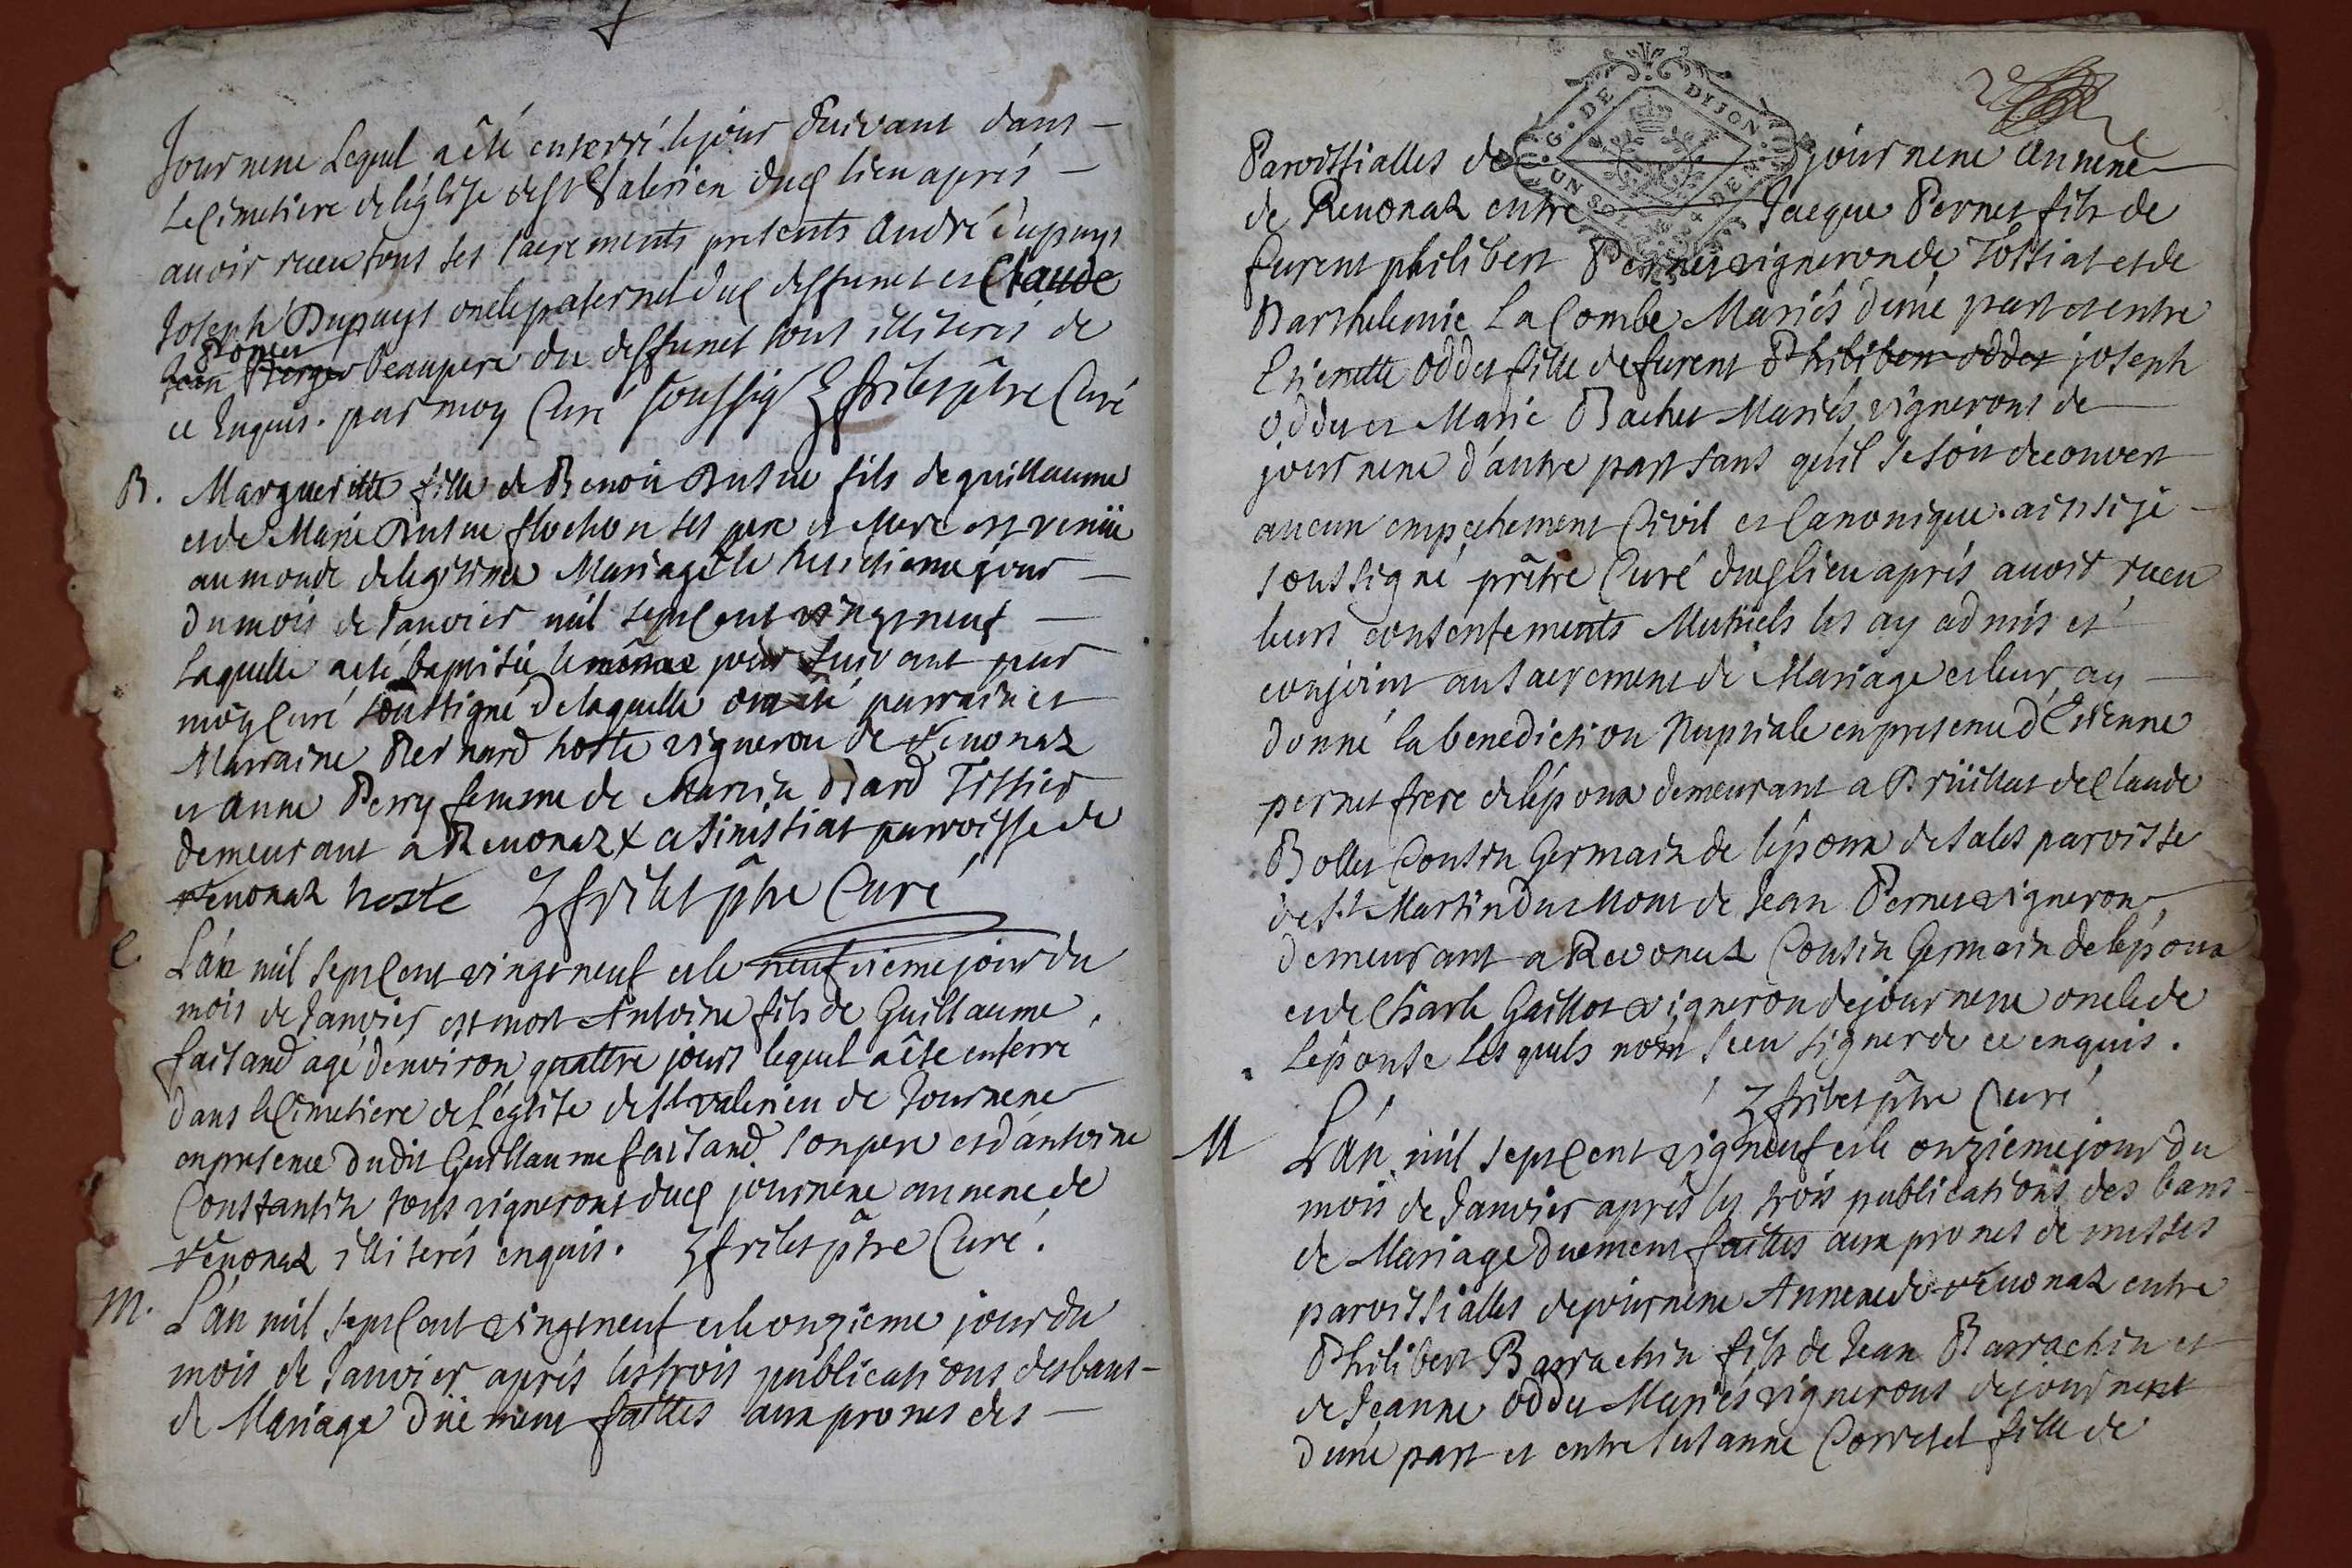 Journene Lequel a êté enterré le jour Suivant dans
Le Cimetiere de lEglise de St Valerien dud lieu aprés
auoir receu tous ses sacrements presents André dupuys
Joseph Dupuys oncle paternel dud deffunct et Claude
Poncet
Jean Berger Beaupere du deffunct tous illiterés de
ce Enquis. par moy Curé soussig frilet ptre Curé
B. Margueritte fille de Benoit Dutue fils de guillaume
et de Marie Dutue flochon ses pere et Mere est venüe
au monde de legitime Mariage le huictieme jour
du mois de Janvier mil sept Cent vingt neuf
Laquelle a eté baptisée le même jour suivant par
moy curé soussigné de laquelle ont eté parrain et
Marraine Bernard hoste vigneron de reuonaz
et anne Perry femme de Martin Biard Tissier
demeurant a Reuonaz x a Sinissiat parroisse de
reuonaz hoste frilet ptre Curé
L'án mil sept Cent vingt neuf et le neufvieme jour du
mois de Janvier est mort Antoine fils de Guillaume
faisand agé d'environ quattre jours lequel a êté enterré
dans le Cimetiere de l'église de St valerien de Journene
en presence dudit Guillaume faisand son pere et d'antoine
Constantin tous vignerons dud journene annexe de
reuonaz illiterés enquis. frilet ptre Curé.
M. L'án mil sept Cent vingt neuf et le onzieme jour du
mois de Janvier aprés les trois publications des bans
de Mariage düement faittes aux prones des
Paroissialles de journene Annexe
de Reuonaz entre Jacque Pernet fils de
furent philibert Pernet vigneron de Tossiat et de
Barthelemie La Combe Mariés d'une part et entre
Etienette oddet fille de furent Philibert oddet joseph
oddet et Marie Bachet Mariés vignerons de
journene d'autre part sans qu'il se soit decouvert
aucun empechement Civil et Canonique. ainsi je
soussigné prêtre Curé dud lieu aprés auoir receu
leurs consentements Mutüels les ay admis et
conjoint au sacrement de Mariage et leur ay
donné la benediction Nuptiale en presence d'Etienne
pernet frere de lépoux demeurant a Drüillat de Claude
Bollet Cousin Germain de lépoux de sales paroisse
de St Martin du Mont de Jean Pernet vigneron
demeurant a Revonas Cousin Germain de lépoux
et de Charle Gaillot vigneron de journene oncle de
Lépouse Lesquels nont sceu signer de ce enquis.
frilet ptre Curé
M L'án mil sept Cent vigneuf et le onzieme jour du
mois de Janvier aprés les trois publications des bans
de Mariage duement faittes aux prones de messes
paroissialles de journene Annexe de reuonaz entre
Philibert Barrachin fils de Jean Barrachin et
de Jeanne oddet Mariés vignerons de journene
d'une part et entre Susanne Corretel fille de